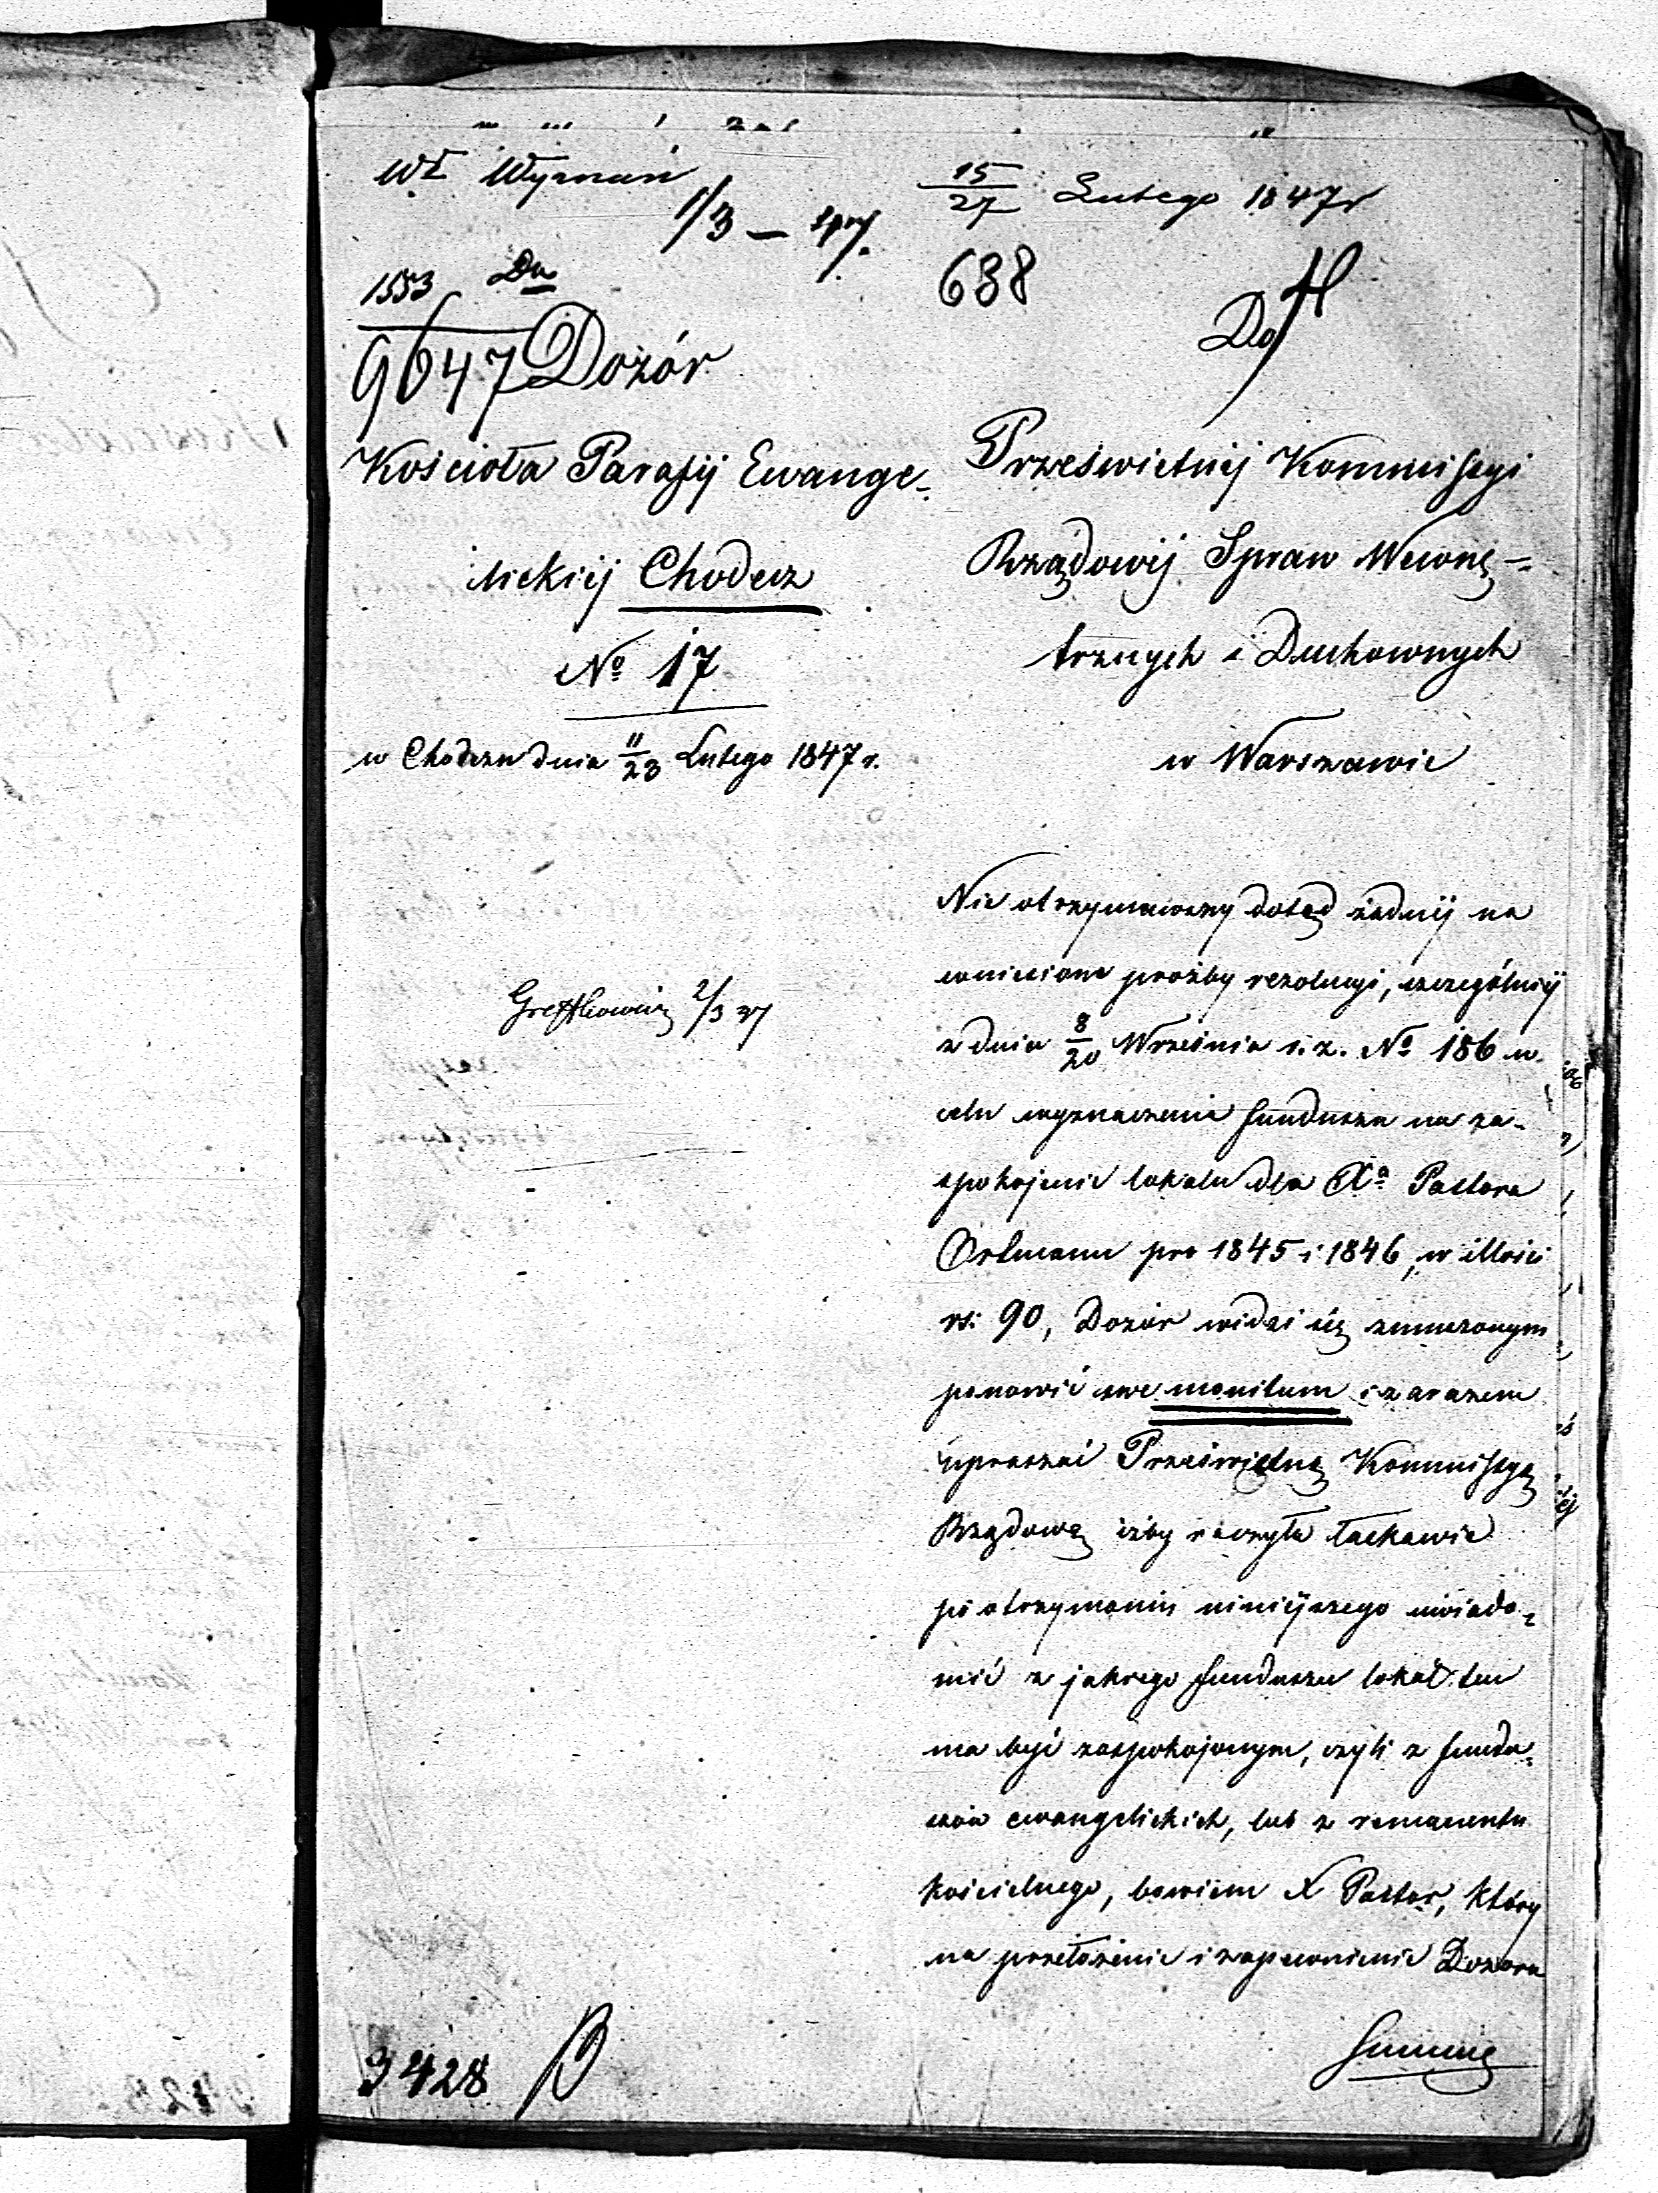 Wł Wyznań
1/3 —
15/27 Lutego 1847 r
1553
9647
638
Dozór
Kościoła Parafij Ewange-
lickiej Chodecz
№ 17
w Chodczu dnia 11/23 Lutego 1847 r.
Do
Prześwietnéj Kommissyi
Rządowéj Spraw Wewnę-
trznych i Duchownych
w Warszawie
2/3 47
Nie otrzymawszy dotąd żadnéj na
wniesione prośby rezolucyi, szczególniéj
z dnia 8/20 Września r. z. № 186 w
celu wyznaczenia funduszu na za-
spokojenie lokalu dla Xa Pastora
Ortmann pro 1845 i 1846, w ilości
rs: 90, Dozór widzi się zmuszonym
ponowić swe monitum i zarazem
upraszać Prześwietną Kommissyę
Rządową iżby raczyła łaskawie
po otrzymaniu niniejszego uwiado-
mić z jakiego funduszu lokal ten
ma być zaspokojonym, czyli z fundu-
szów ewangelickich, lub z remanentu
kościelnego, bowiem X Pastor, który
na przełożenie i zapewnienie Dozoru
summę
3428